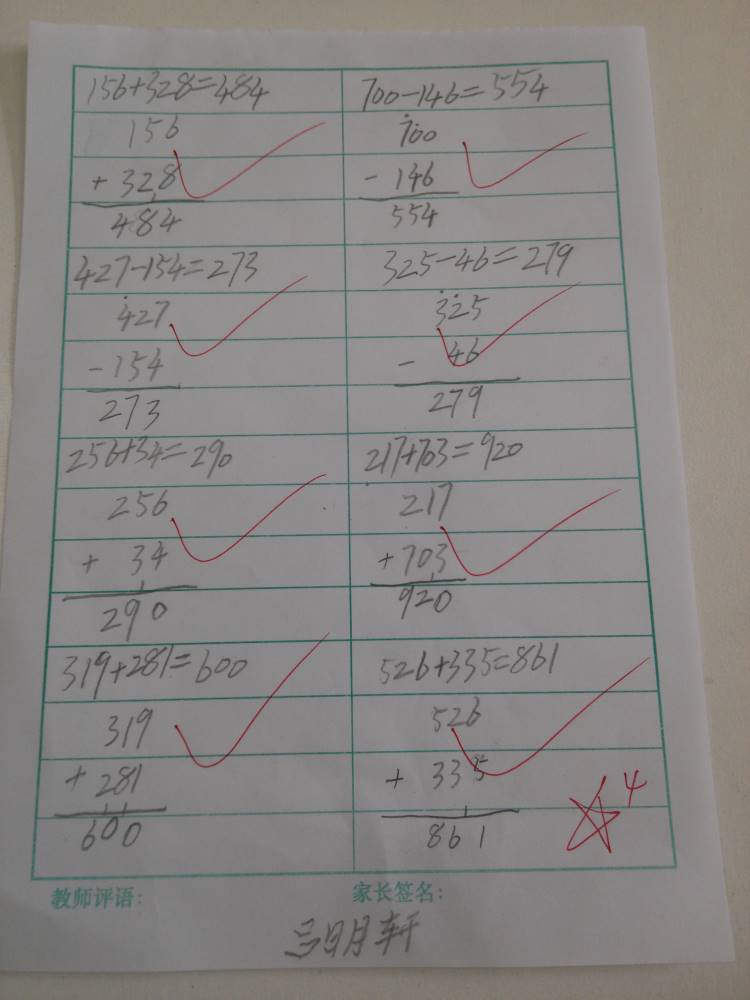 156+328=484
156
+ 328
484
700-146=554
700
- 146
554
427-154=273
427
- 154
273
325-46=279
325
- 46
279
256+34=290
256
+ 34
290
217+703=920
217
+ 703
920
319+281=600
319
+ 281
600
526+335=861
526
+ 335
861
4
教师评语:
家长签名:
明轩